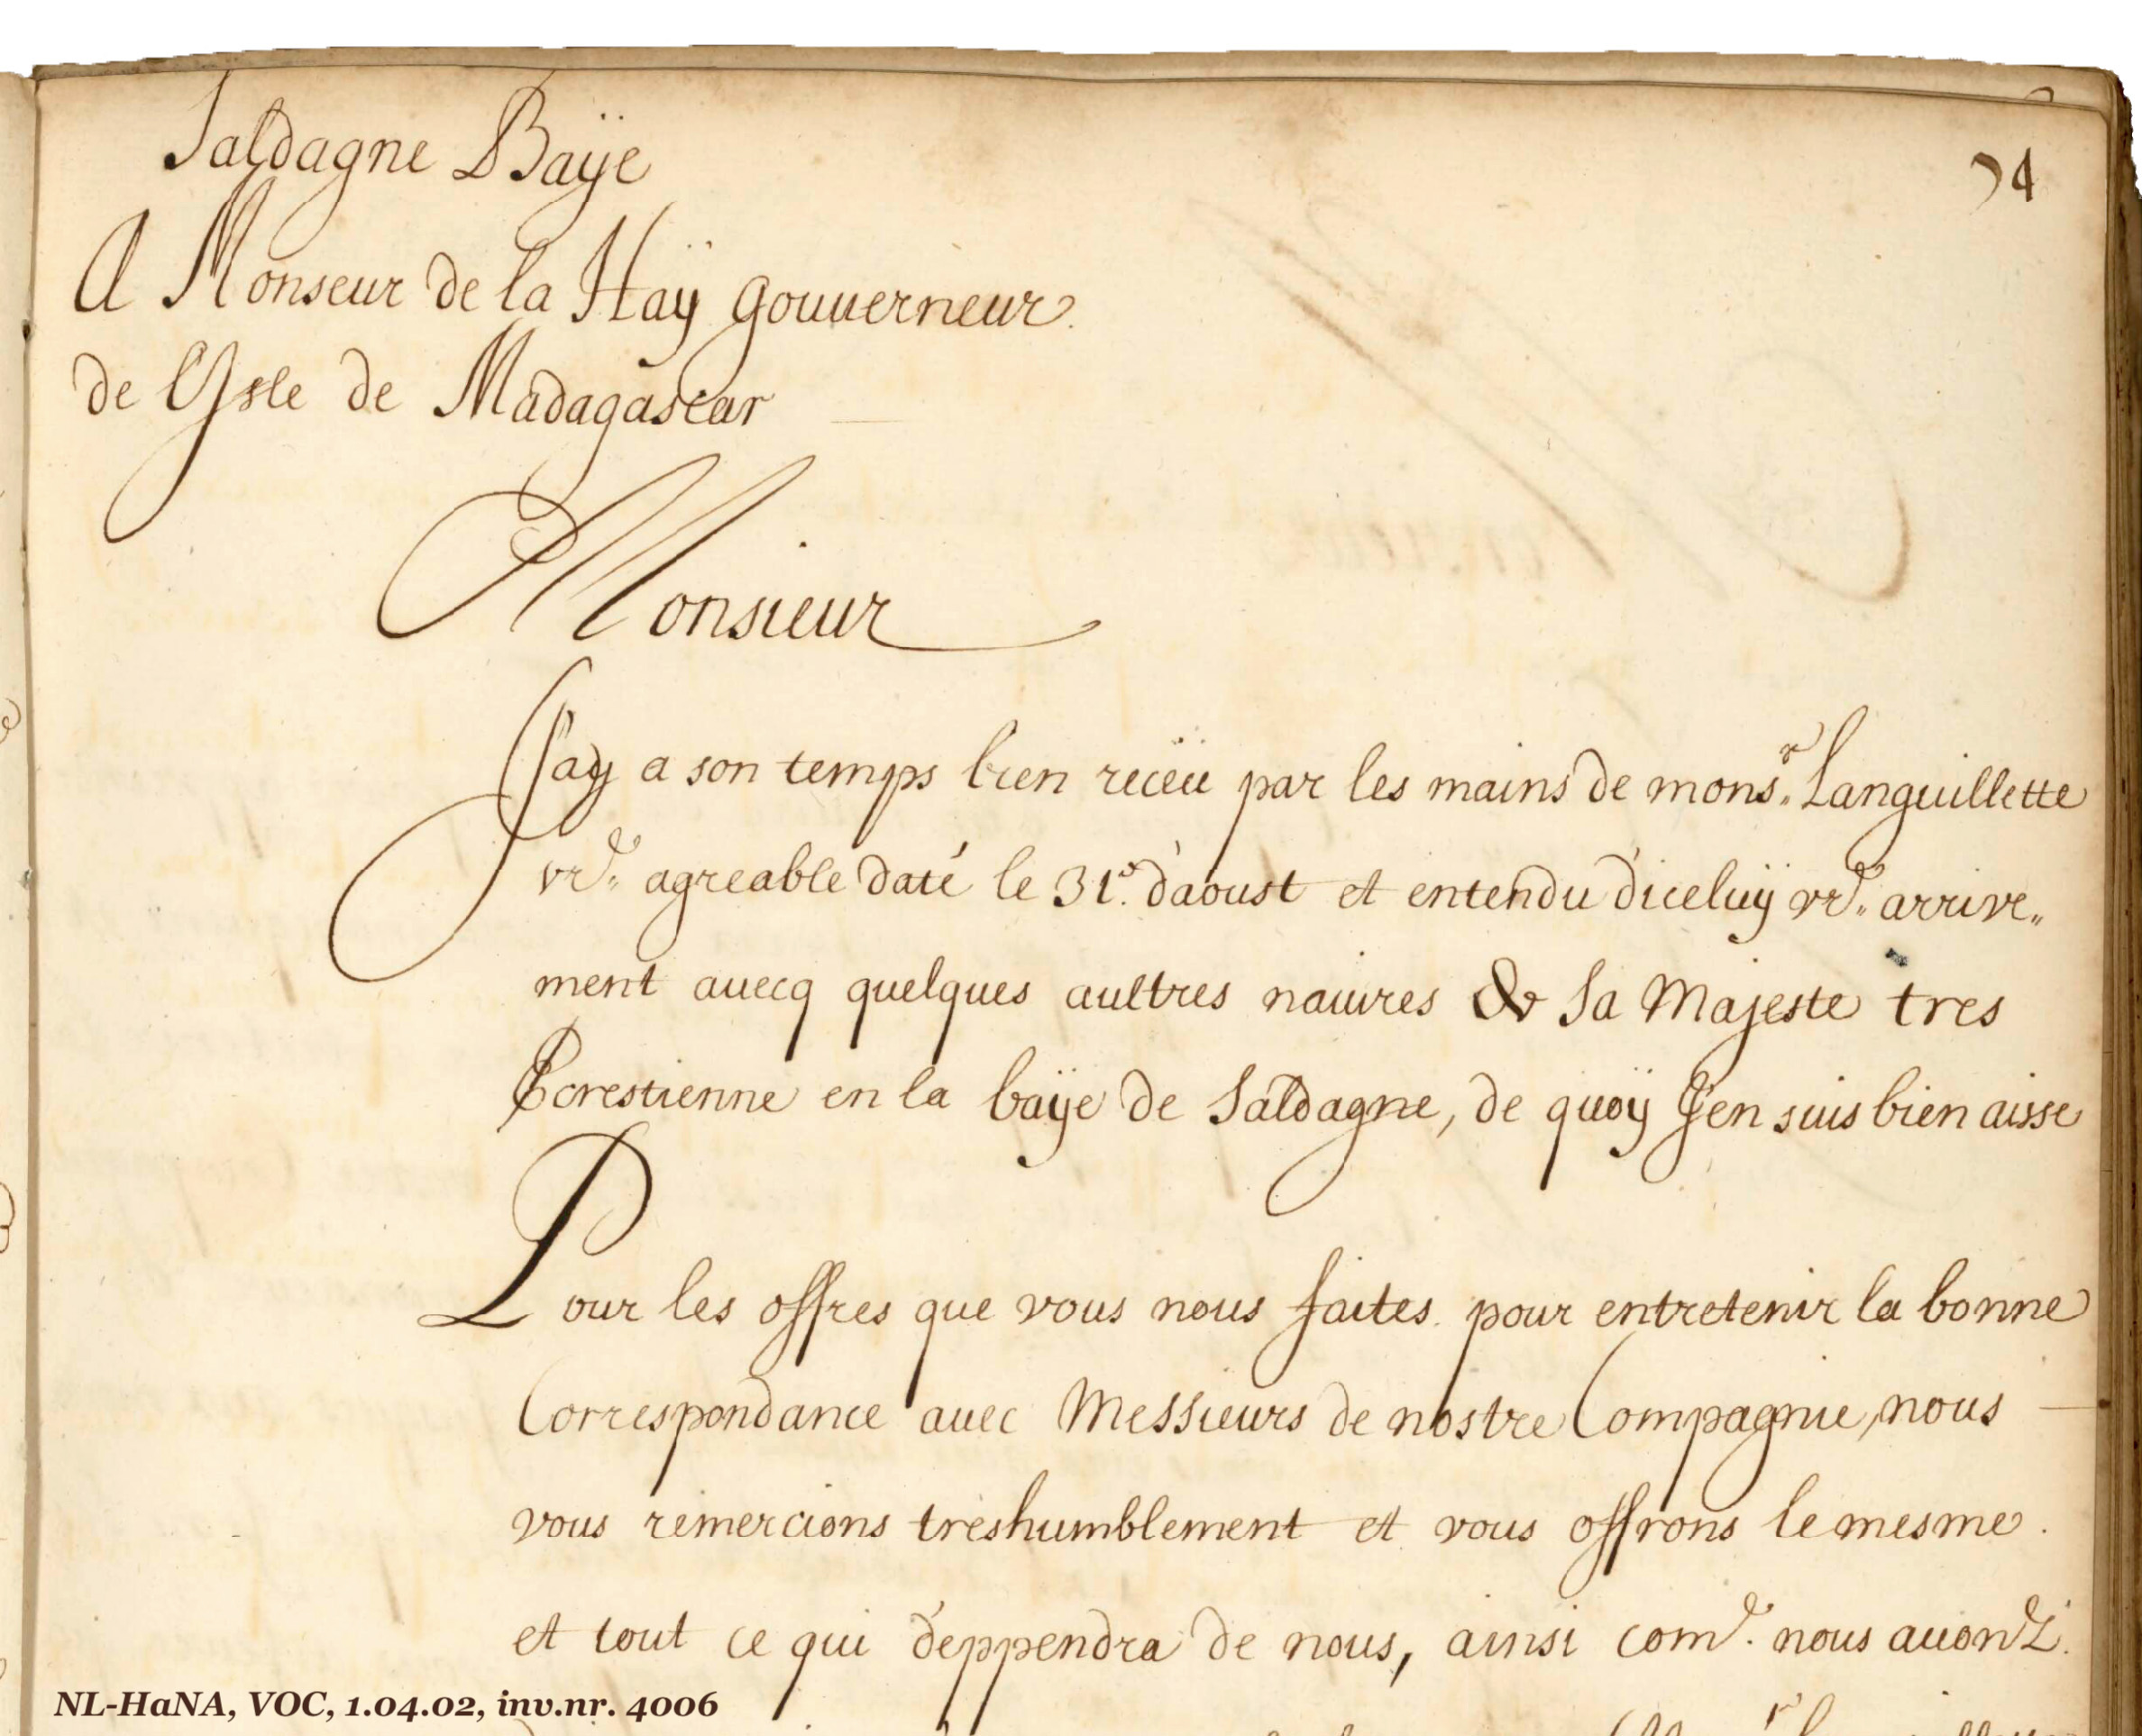 Saldagne Baÿe
94
A Monseur de la Haÿ gouuerneur.
de l'Isle de Madagascar
Monsieur
J'ay a son temps bien receü par les mains de mons.r Languillette
vre. agreable daté le 31e. d'aoust et entendu d'iceluÿ vre. arrive„
ment auecq quelques aultres nauires de sa Majeste tres
Crestienne en la baÿe de Saldagne, de quoÿ J'en suis bien aisse
Pour les offres que vous nous faites pour entretenir la bonne
Correspondance auec Messieurs de nostre Compagnie, nous
vous remercions treshumblement et vous offrons le mesme.
et tout ce qui d'eppendra de nous, ainsi come. nous auons
NL-HaNA, VOC, 1.04.02, inv.nr. 4006